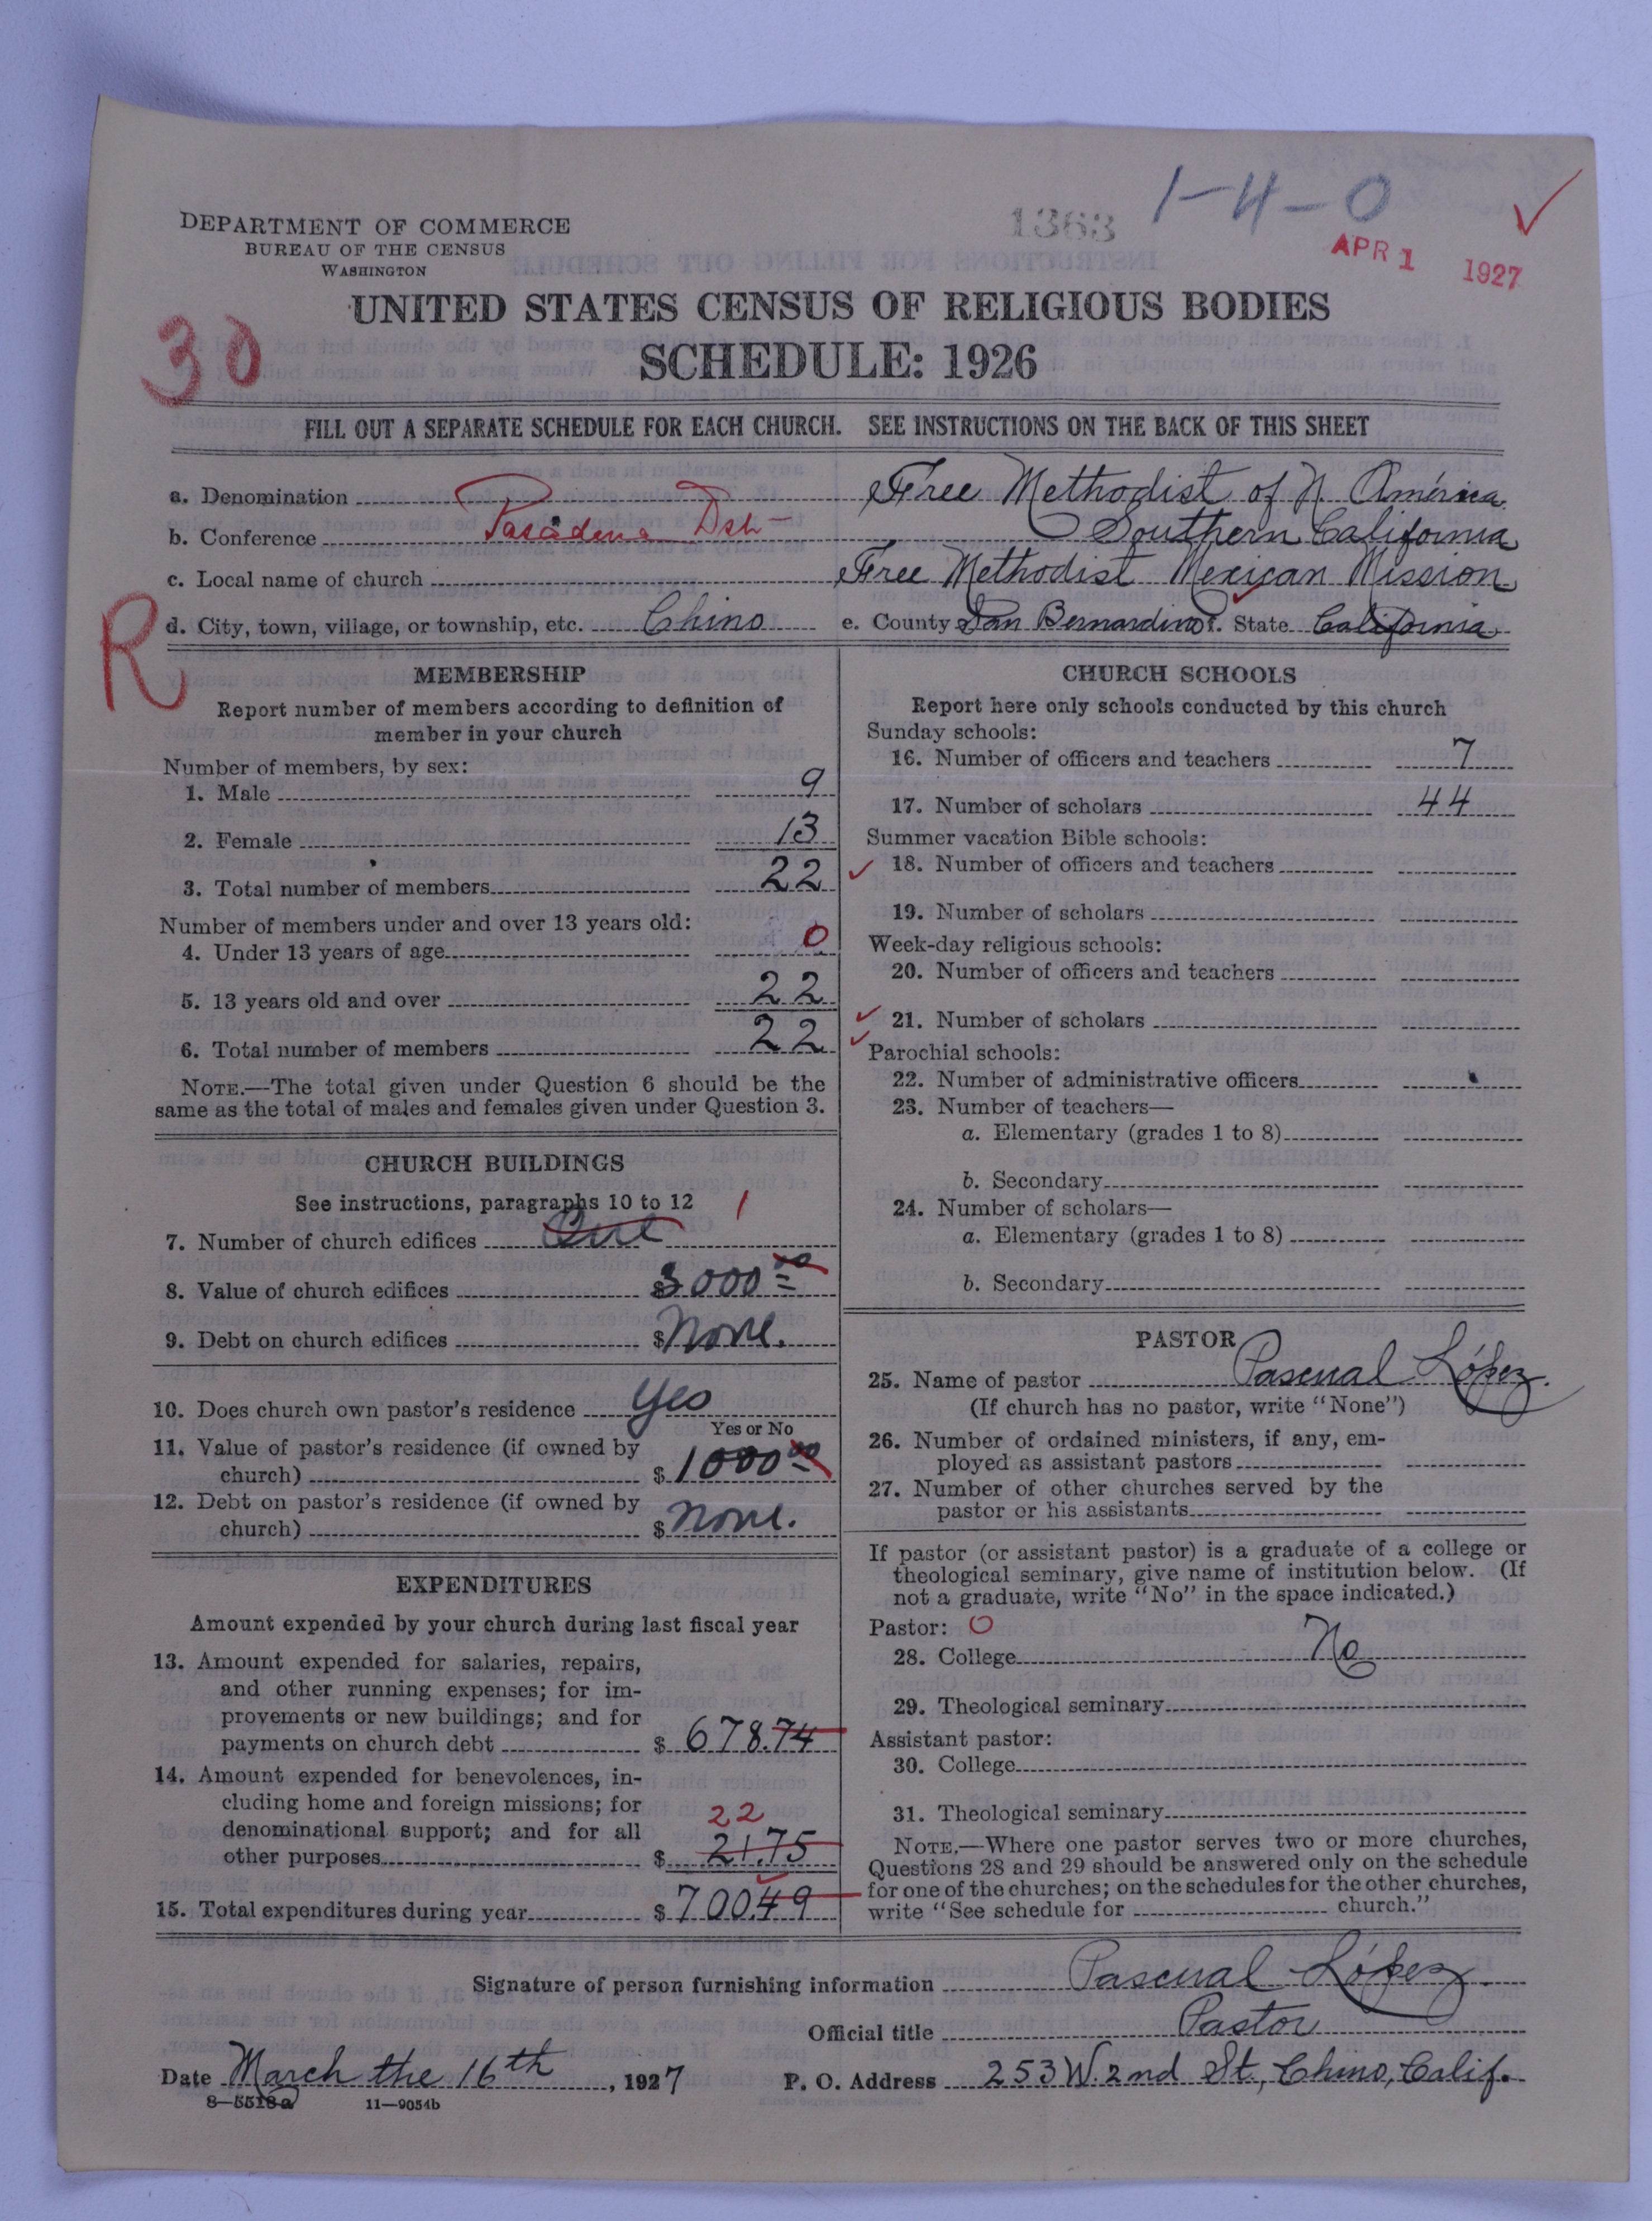 1363
1-4-0
APR 1 1927
DEPARTMENT OF COMMERCE
BUREAU OF THE CENSUS
WASHINGTON
UNITED STATES CENSUS OF RELIGIOUS BODIES
30
SCHEDULE: 1926
FILL OUT A SEPARATE SCHEDULE FOR EACH CHURCH. SEE INSTRUCTIONS ON THE BACK OF THIS SHEET
a. Denomination Free Methodist of N. América.
b. Conference Pasadena Dist Southern California
c. Local name of church Free Methodist Mexican Mission
R
d. City, town, village, or township, etc. Chino e. County San Bernardino State California
MEMBERSHIP
Report number of members according to definition of
member in your church
Number of members, by sex:
1. Male 9
2. Female 13
3. Total number of members 22
Number of members under and over 13 years old:
4. Under 13 years of age 0
5. 13 years old and over 22
6. Total number of members 22
NOTE.—The total given under Question 6 should be the
same as the total of males and females given under Question 3.
CHURCH BUILDINGS
See instructions, paragraphs 10 to 12
7. Number of church edifices One 1
8. Value of church edifices $3000.00
9. Debt on church edifices $None.
10. Does church own pastor's residence Yes
Yes or No
11. Value of pastor's residence (if owned by
church) $1000.00
12. Debt on pastor's residence (if owned by
church) $None.
EXPENDITURES
Amount expended by your church during last fiscal year
13. Amount expended for salaries, repairs,
and other running expenses; for im-
provements or new buildings; and for
payments on church debt $678.74
14. Amount expended for benevolences, in-
cluding home and foreign missions; for
22
denominational support; and for all
other purposes $21.75
15. Total expenditures during year $700.49
CHURCH SCHOOLS
Report here only schools conducted by this church
Sunday schools:
16. Number of officers and teachers 7
17. Number of scholars 44
Summer vacation Bible schools:
18. Number of officers and teachers
19. Number of scholars
Week-day religious schools:
20. Number of officers and teachers
21. Number of scholars
Parochial schools:
22. Number of administrative officers
23. Number of teachers—
a. Elementary (grades 1 to 8)
b. Secondary
24. Number of scholars—
a. Elementary (grades 1 to 8)
b. Secondary
PASTOR
25. Name of pastor Pascual López.
(If church has no pastor, write "None")
26. Number of ordained ministers, if any, em-
ployed as assistant pastors
27. Number of other churches served by the
pastor or his assistants
If pastor (or assistant pastor) is a graduate of a college or
theological seminary, give name of institution below. (If
not a graduate, write "No" in the space indicated.)
Pastor: 0
28. College No
29. Theological seminary
Assistant pastor:
30. College
31. Theological seminary
NOTE.—Where one pastor serves two or more churches,
Questions 28 and 29 should be answered only on the schedule
for one of the churches; on the schedules for the other churches,
write "See schedule for church."
Signature of person furnishing information Pascual López.
Official title Pastor
Date March the 16th, 1927 P. O. Address 253 W. 2nd St., Chino, Calif.
8—5518a 11—9054b